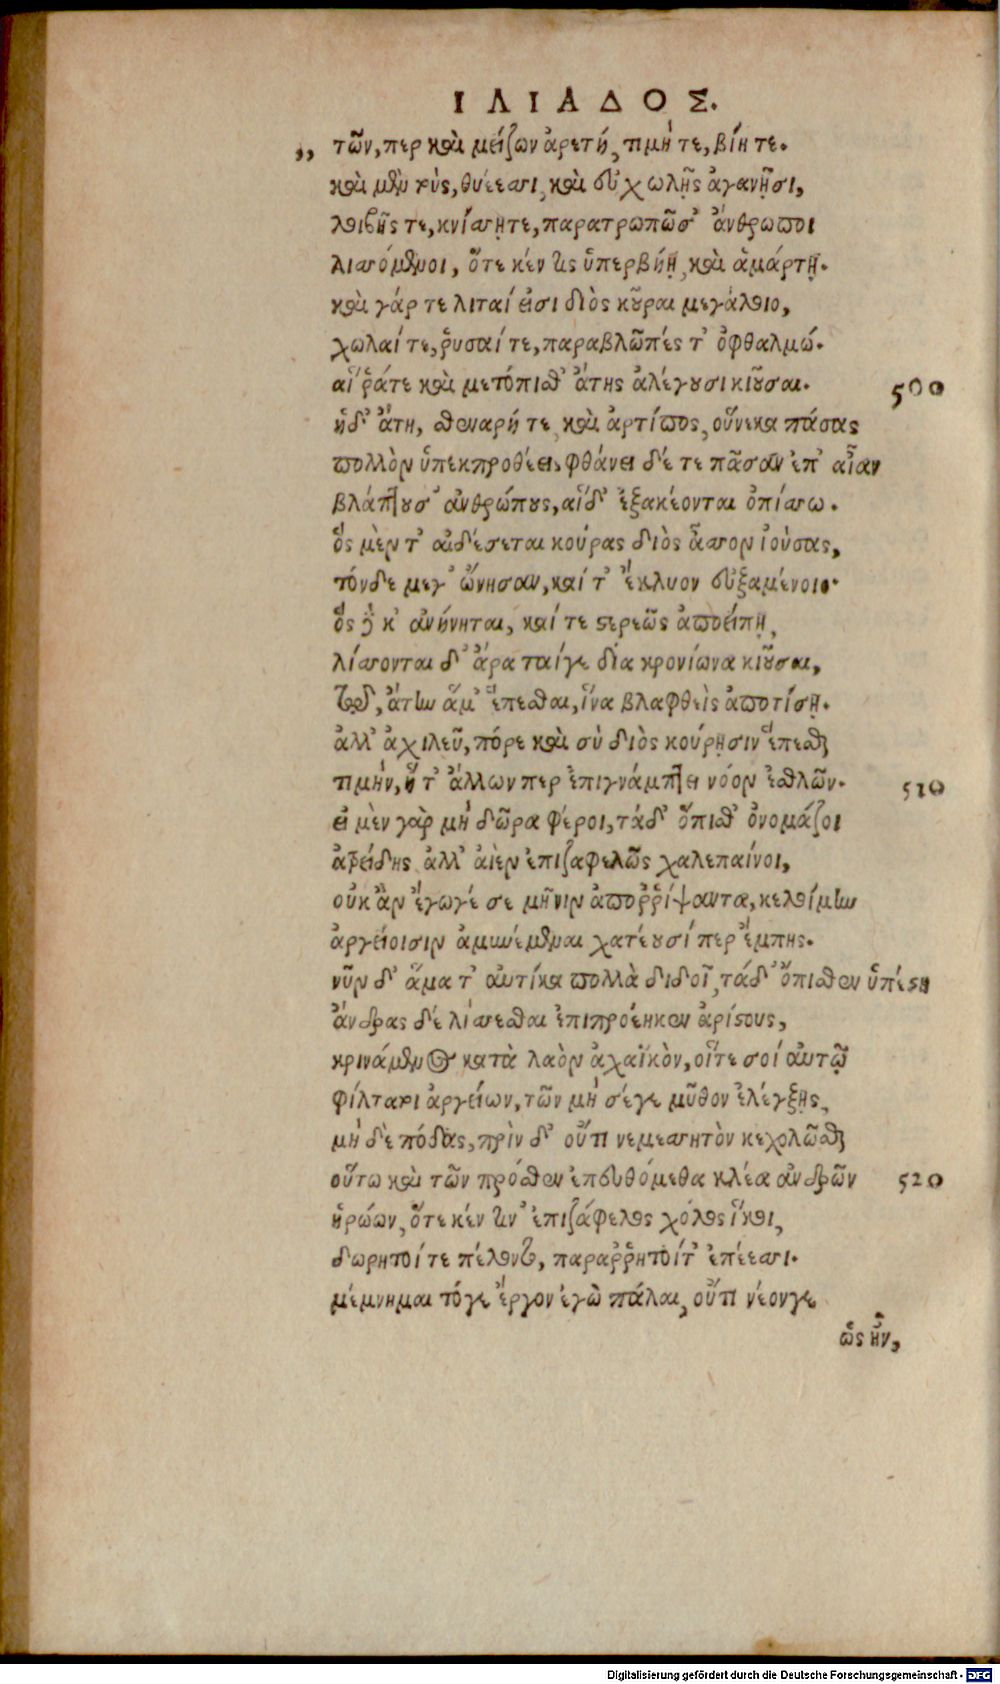 ΙΛΙΑΔΟΣ.
,, τῶν, περ καὶ μείζων ἀρετή, τιμή τε, βίη τε.
καὶ μὲν τοὺς, θυέεσσι, καὶ εὐχωλῇς ἀγανῇσι,
λοιβῆς τε, κνίσσῃτε, παρατρωπῶσ' ἄνθρωποι
λισσόμενοι, ὅτε κέν τις ὑπερβήῃ, καὶ ἁμάρτῃ.
καὶ γάρ τε λιταί εἰσι διὸς κοῦραι μεγάλοιο,
χωλαί τε, ῥυσαί τε, παραβλῶπές τ' ὀφθαλμώ.
αἵ ῥάτε καὶ μετόπισθ' ἄτης ἀλέγουσι κιοῦσαι. 500
ἡδ' ἄτη, σθεναρή τε, καὶ ἀρτίπος, οὕνεκα πάσας
πολλὸν ὑπεκπροθέει, φθάνει δέ τε πᾶσαν ἐπ' αἶαν
βλάπτουσ' ἀνθρώπους, αἵδ' ἐξακέονται ὀπίσσω.
ὃς μὲν τ' αἰδέσεται κούρας διὸς ἆσσον ἰούσας,
τόνδε μεγ' ὤνησαν, καί τ' ἔκλυον εὐξαμένοιο.
ὃς δέ κ' ἀνήνηται, καί τε στερεῶς ἀποείπῃ,
λίσσονται δ' ἄρα ταίγε δία κρονίωνα κιοῦσαι,
τῷδ', ἄτην ἅμ' ἕπεσθαι, ἵνα βλαφθεὶς ἀποτίσῃ.
ἀλλ' ἀχιλεῦ, πόρε καὶ σὺ διὸς κούρῃσιν ἕπεσθαι
τιμὴν, ἥ τ' ἄλλων περ ἐπιγνάμπτει νόον ἐσθλῶν. 510
εἰ μὲν γὰρ μὴ δῶρα φέροι, τάδ' ὄπισθ' ὀνομάζοι
ἀτρείδης ἀλλ' αἰὲν ἐπιζαφελῶς χαλεπαίνοι,
οὐκ ἂν ἔγωγέ σε μῆνιν ἀποῤῥίψαντα, κελοίμην
ἀργείοισιν ἀμυνέμεναι χατέουσί περ ἔμπης.
νῦν δ' ἅμα τ' αὐτίκα πολλὰ διδοῖ, τάδ' ὄπισθεν ὑπέστη
ἄνδρας δὲ λίσσεσθαι ἐπιπροέηκεν ἀρίστους,
κρινάμενος κατὰ λαὸν ἀχαϊκὸν, οἵτε σοί αὐτῷ
φίλτατοι ἀργείων, τῶν μὴ σέγε μῦθον ἐλέγξῃς,
μὴ δὲ πόδας, πρὶν δ' οὔτι νεμεσσητὸν κεχολῶσθαι
οὕτω καὶ τῶν πρόσθεν ἐπευθόμεθα κλέα ἀνδρῶν 520
ἡρώων, ὅτε κέν τιν' ἐπιζάφελος χόλος ἵκοι,
δωρητοί τε πέλοντο, παραῤῥητοίτ' ἐπέεσσι.
μέμνημαι τόγε ἔργον ἐγὼ πάλαι, οὔτι νέονγε
ὡς ἦν,
Digitalisierung gefördert durch die Deutsche Forschungsgemeinschaft - DFG